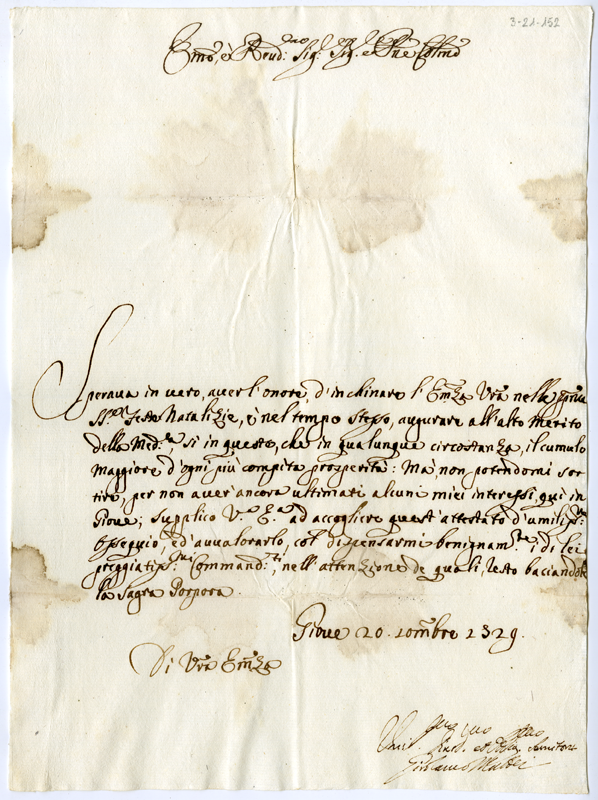 3-21-152
Em̃o, è Reud:mo Sig: Sig. e Pñe Colmo
Speraua in uero, auer l'onore, d'inchinare l'Em̃za Vr̃a nelle
SS.me Feste Natalizie, è nel tempo stesso, augurare all'alto Merito
della Med.ma, si in queste, che in qualunque circostanza, il cumulo
maggiore d'ogni più compita prosperità: Mà, non potendomi sor
tire, per non auer'ancora ultimati alcuni miei interessi, qui in
Gioue; supplico V.a E.a ad accogliere quest'attestato d'umiliss:mo
Ossequio, ed'auualorarlo, col dispensarmi benignam.te i di lei
preggiatiss:mi Command:ti, nell'attenzione de quali, resto baciandole
la Sagra Porpora.
Gioue 20. Xombre 1729.
Di Vr̃a Em̃za
Vmi.mo
Girolamo Mattei